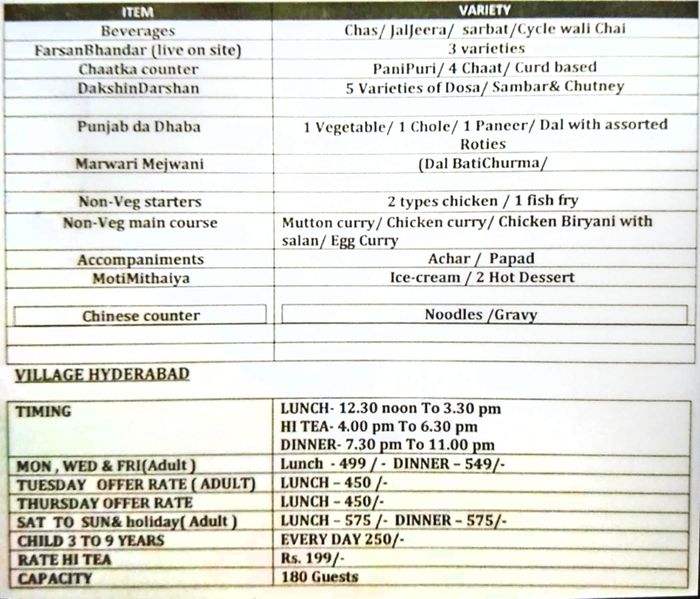 ITEM VARIETY
Beverages Chas/ JalJeera/ sarbat/Cycle wali Chai
FarsanBhandar (live on site) 3 varieties
Chaatka counter PaniPuri/ 4 Chaat/ Curd based
DakshinDarshan 5 Varieties of Dosa/ Sambar& Chutney
Punjab da Dhaba 1 Vegetable/ 1 Chole/ 1 Paneer/ Dal with assorted
Roties
Marwari Mejwani (Dal BatiChurma/
Non-Veg starters 2 types chicken / 1 fish fry
Non-Veg main course Mutton curry/ Chicken curry/ Chicken Biryani with
salan/ Egg Curry
Accompaniments Achar / Papad
MotiMithaiya Ice-cream / 2 Hot Dessert
Chinese counter Noodles /Gravy
VILLAGE HYDERABAD
TIMING LUNCH- 12.30 noon To 3.30 pm
HI TEA- 4.00 pm To 6.30 pm
DINNER- 7.30 pm To 11.00 pm
MON , WED & FRI(Adult ) Lunch - 499 /- DINNER – 549/-
TUESDAY OFFER RATE ( ADULT) LUNCH – 450 /-
THURSDAY OFFER RATE LUNCH – 450/-
SAT TO SUN& holiday( Adult ) LUNCH – 575 /- DINNER – 575/-
CHILD 3 TO 9 YEARS EVERY DAY 250/-
RATE HI TEA Rs. 199/-
CAPACITY 180 Guests